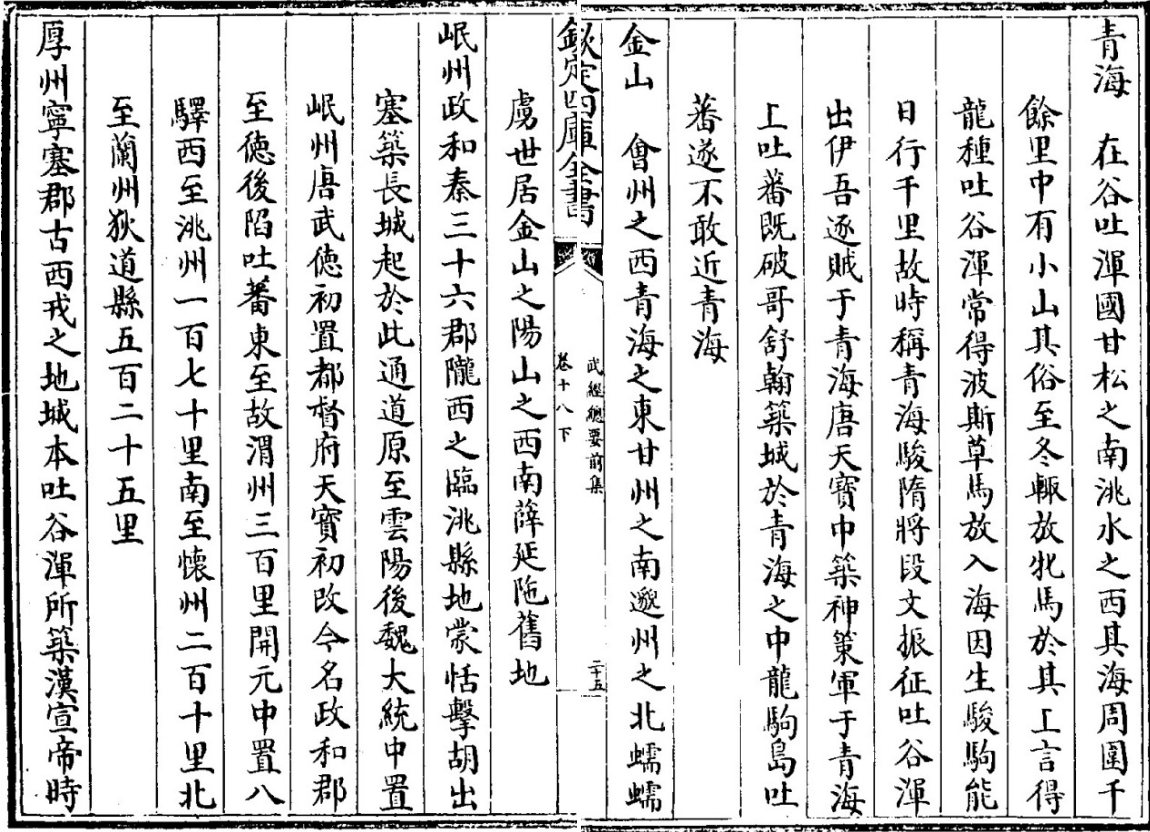 青海　在谷吐渾國甘松之南洮水之西其海周圍千
餘里中有小山其俗至冬輙放牝馬於其上言得
龍種吐谷渾常得波斯草馬放入海因生駿駒能
日行千里故時稱青海駿隋將段文振征吐谷渾
出伊吾逐賊于青海唐天寶中築神策軍于青海
上吐蕃既破哥舒翰築城於青海之中龍駒島吐
蕃遂不敢近青海
金山　會州之西青海之東甘州之南邈州之北蠕蠕
欽定四庫全書
武經總要前集
卷十八下
二十五
虜世居金山之陽山之西南薛延陁舊地
岷州政和秦三十六郡隴西之臨洮縣地蒙恬擊胡出
塞築長城起於此通道原至雲陽後魏大統中置
岷州唐武徳初置都督府天寳初改今名政和郡
至徳後陷吐蕃東至故渭州三百里開元中置八
驛西至洮州一百七十里南至懷州二百十里北
至蘭州狄道縣五百二十五里
厚州寧塞郡古西戎之地城本吐谷渾所築漢宣帝時